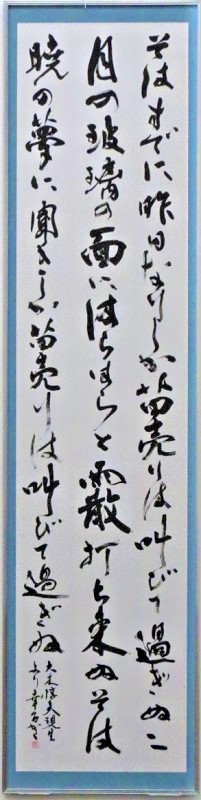 そはすでに昨日なりしか苗売りは叫びて過ぎぬ二
月の玻璃の面にはらはらと霰打ち来ぬそは
暁の夢に聞きしか苗売りは叫びて過ぎぬ
大木惇夫